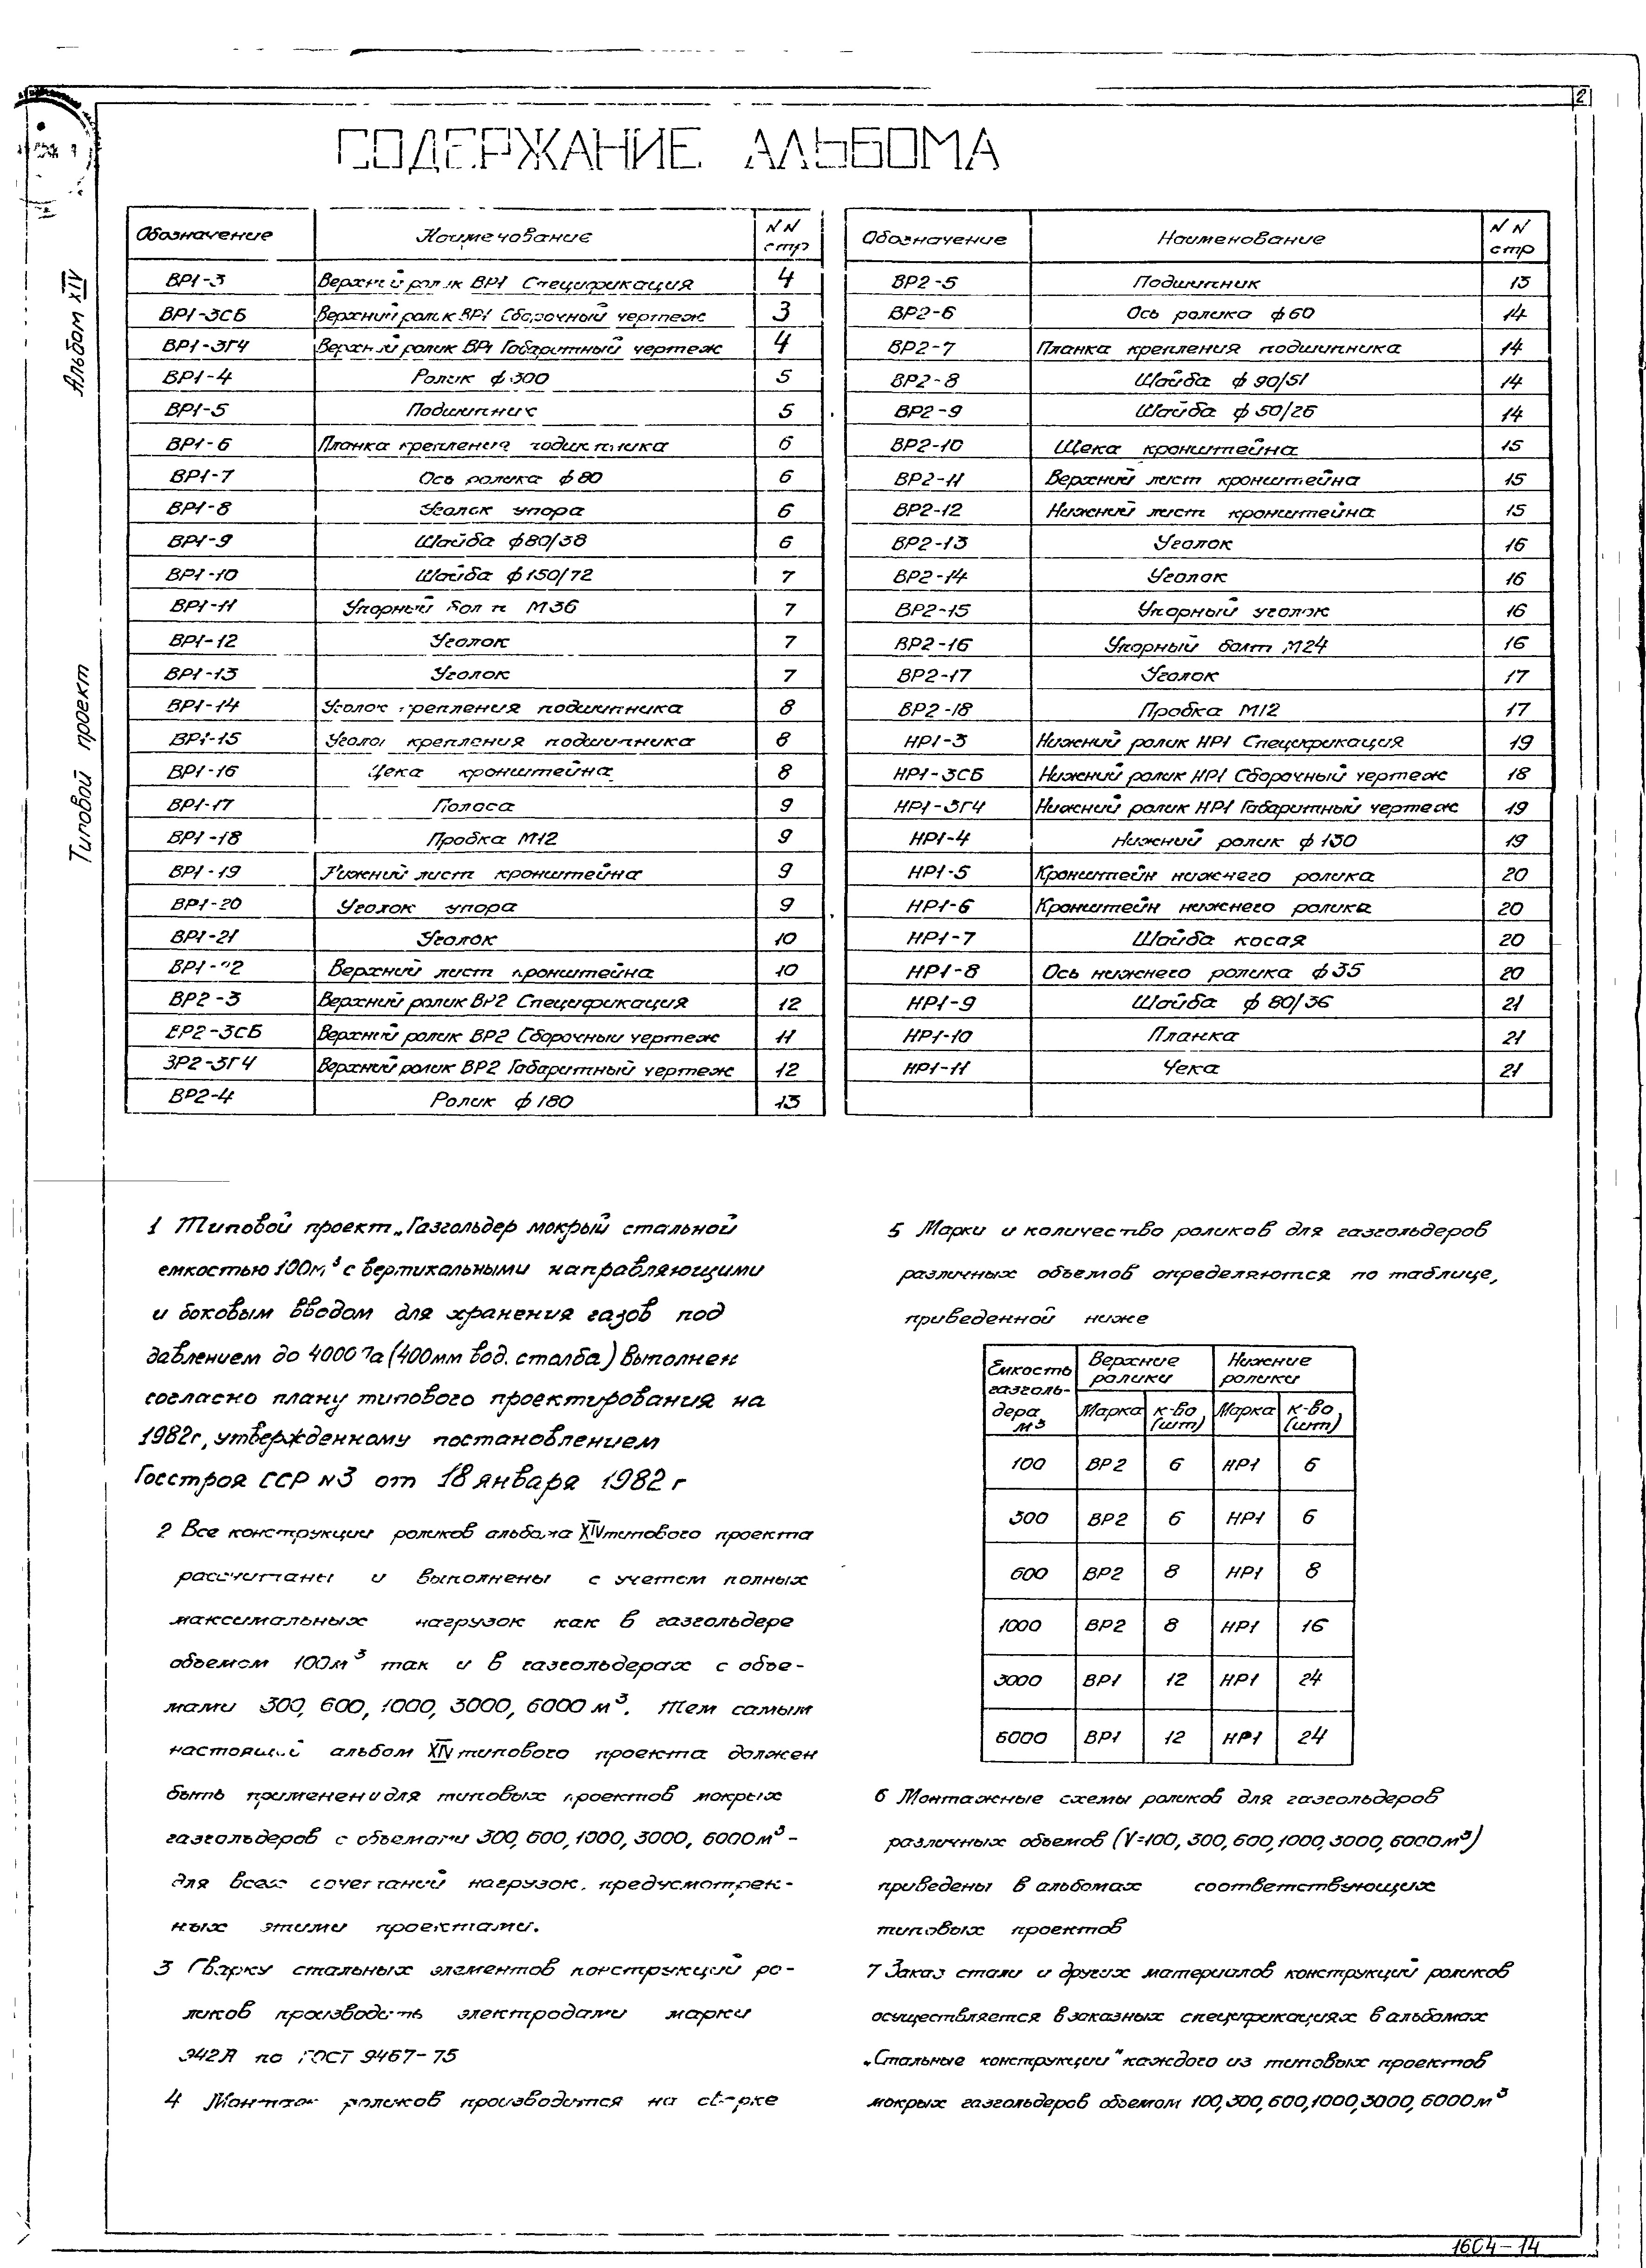 2
СОДЕРЖАНИЕ АЛЬБОМА
Альбом XIV
Типовой проект
Обозначение Наименование NN стр
ВР1-3 Верхний ролик ВР1 Спецификация 4
ВР1-3СБ Верхний ролик ВР1 Сборочный чертеж 3
ВР1-3ГЧ Верхний ролик ВР1 Габаритный чертеж 4
ВР1-4 Ролик ф 300 5
ВР1-5 Подшипник 5
ВР1-6 Планка крепления подшипника 6
ВР1-7 Ось ролика ф 80 6
ВР1-8 Уголок упора 6
ВР1-9 Шайба ф80/38 6
ВР1-10 Шайба ф 150/72 7
ВР1-11 Упорный болт М36 7
ВР1-12 Уголок 7
ВР1-13 Уголок 7
ВР1-14 Уголок крепления подшипника 8
ВР1-15 Уголок крепления подшипника 8
ВР1-16 Щека кронштейна 8
ВР1-17 Полоса 9
ВР1-18 Пробка М12 9
ВР1-19 Нижний лист кронштейна 9
ВР1-20 Уголок упора 9
ВР1-21 Уголок 10
ВР1-22 Верхний лист кронштейна 10
ВР2-3 Верхний ролик ВР2 Спецификация 12
ВР2-3СБ Верхний ролик ВР2 Сборочный чертеж 11
ВР2-3ГЧ Верхний ролик ВР2 Габаритный чертеж 12
ВР2-4 Ролик ф 180 13
Обозначение Наименование NN стр
ВР2-5 Подшипник 13
ВР2-6 Ось ролика ф60 14
ВР2-7 Планка крепления подшипника 14
ВР2-8 Шайба ф 90/51 14
ВР2-9 Шайба ф 50/26 14
ВР2-10 Щека кронштейна 15
ВР2-11 Верхний лист кронштейна 15
ВР2-12 Нижний лист кронштейна 15
ВР2-13 Уголок 16
ВР2-14 Уголок 16
ВР2-15 Упорный уголок 16
ВР2-16 Упорный болт М24 16
ВР2-17 Уголок 17
ВР2-18 Пробка М12 17
НР1-3 Нижний ролик НР1 Спецификация 19
НР1-3СБ Нижний ролик НР1 Сборочный чертеж 18
НР1-3ГЧ Нижний ролик НР1 Габаритный чертеж 19
НР1-4 Нижний ролик ф 130 19
НР1-5 Кронштейн нижнего ролика 20
НР1-6 Кронштейн нижнего ролика 20
НР1-7 Шайба косая 20
НР1-8 Ось нижнего ролика ф 35 20
НР1-9 Шайба ф 80/36 21
НР1-10 Планка 21
НР1-11 Чека 21
1 Типовой проект „Газгольдер мокрый стальной
емкостью 100м³ с вертикальными направляющими
и боковым вводом для хранения газов под
давлением до 4000 Па (400мм вод. столба) выполнен
согласно плану типового проектирования на
1982г, утвержденному постановлением
Госстроя СССР N3 от 18 января 1982 г
2 Все конструкции роликов альбома XIV типового проекта
рассчитаны и выполнены с учетом полных
максимальных нагрузок как в газгольдере
объемом 100м³ так и в газгольдерах с объе-
мами 300, 600, 1000, 3000, 6000 м³. Тем самым
настоящий альбом XIV типового проекта должен
быть применен и для типовых проектов мокрых
газгольдеров с объемами 300, 600, 1000, 3000, 6000м³-
для всех сочетаний нагрузок, предусмотрен-
ных этими проектами.
3 Сварку стальных элементов конструкций ро-
ликов производить электродами марки
Э42А по ГОСТ 9467-75
4 Монтаж роликов производится на сварке
5 Марки и количество роликов для газгольдеров
различных объемов определяются по таблице,
приведенной ниже
Емкость газголь-дера м³ Верхние ролики Нижние ролики
Марка к-во (шт) Марка к-во (шт)
100 ВР2 6 НР1 6
300 ВР2 6 НР1 6
600 ВР2 8 НР1 8
1000 ВР2 8 НР1 16
3000 ВР1 12 НР1 24
6000 ВР1 12 НР1 24
6 Монтажные схемы роликов для газгольдеров
различных объемов (V=100, 300, 600, 1000, 3000, 6000м³)
приведены в альбомах соответствующих
типовых проектов
7 Заказ стали и других материалов конструкций роликов
осуществляется в заказных спецификациях в альбомах
„Стальные конструкции" каждого из типовых проектов
мокрых газгольдеров объемом 100, 300, 600, 1000, 3000, 6000м³
1604-14